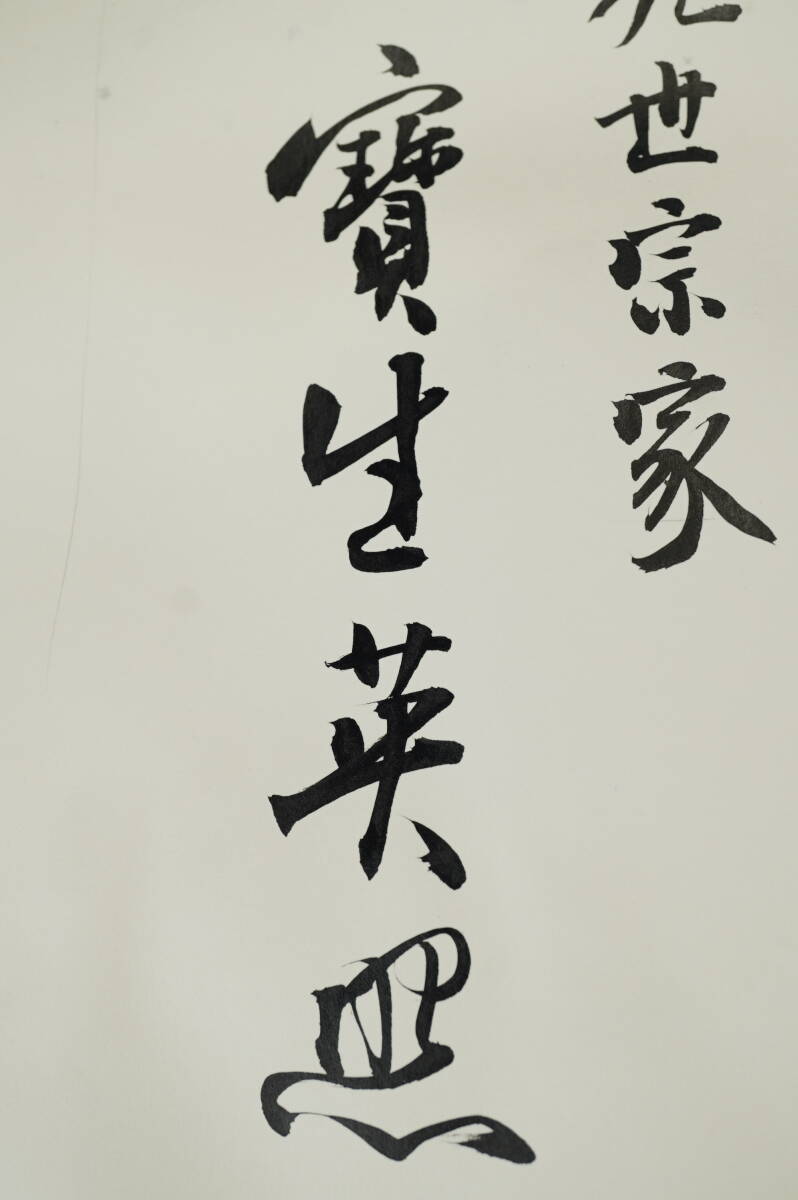 世宗家
寶生英照